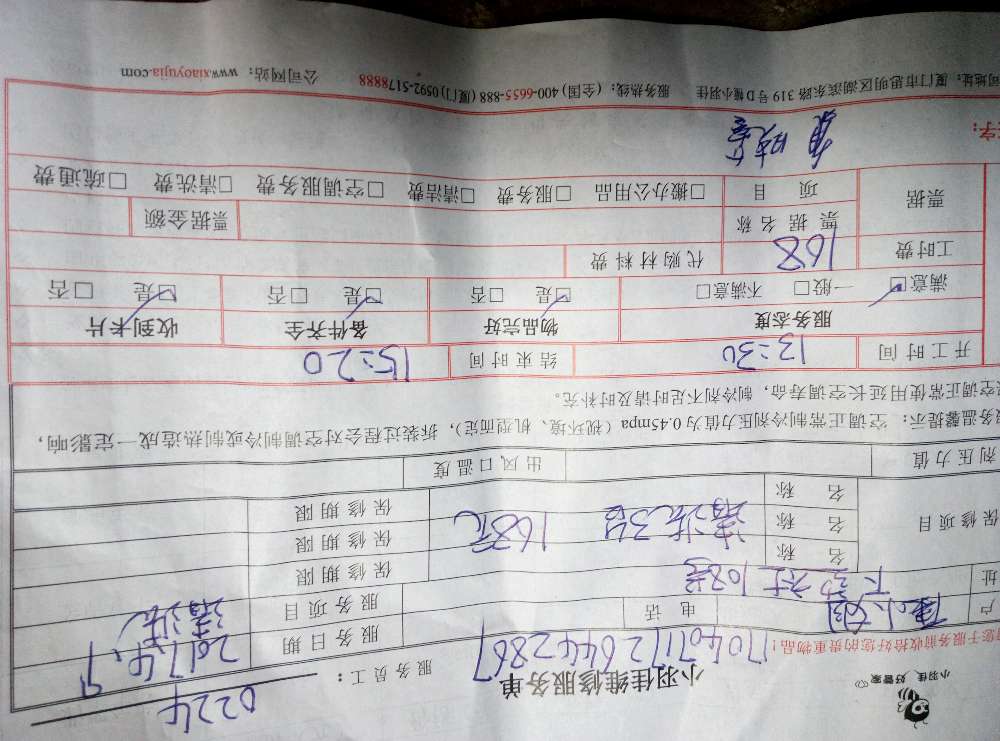 小羽佳 好管家
小羽佳维修服务单
服务员工: 0224
您于服务前收拾好您的贵重物品!
17040711264428 67
户 电话 服务日期 2017.4.9
址 下 村108号 服务项目 清洗
保修项目 名称 保修期限
名称 清洗3台 168元 保修期限
名称 保修期限
剂压力值 出风口温度
服务温馨提示: 空调正常制冷剂压力值为0.45mpa(视环境、机型而定), 拆装过程会对空调制冷或制热造成一定影响,
空调正常使用延长空调寿命, 制冷剂不足时请及时补充。
开工时间 13:30 结束时间 15:20
服务态度 物品完好 备件齐全 收到卡片
满意☑ 一般□ 不满意□ ☑是 □否 ☑是 □否 ☑是 □否
工时费 168 代购材料费
票据 票据名称 票据金额
项目 □搬办公用品 □服务费 □清洁费 □空调服务费 □清洗费 □疏通费
字:
司地址: 厦门市思明区湖滨东路319号D幢小羽佳 服务热线: (全国)400-6655-888 (厦门)0592-5178888 公司网站: www.xiaoyujia.com